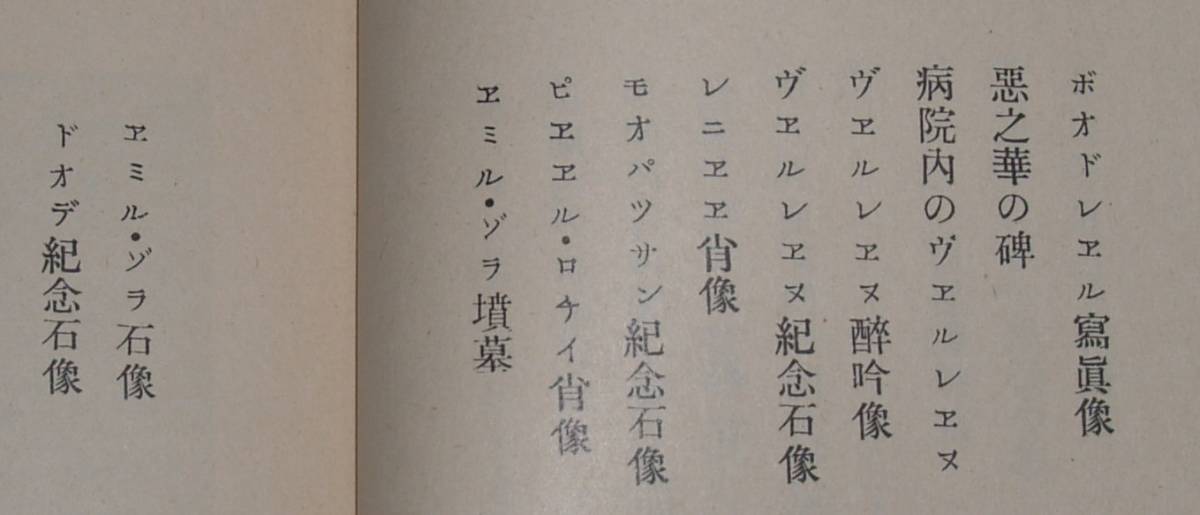 ボオドレヱル寫眞像
惡之華の碑
病院内のヴヱルレヱヌ
ヴヱルレヱヌ醉吟像
ヴヱルレヱヌ紀念石像
レニヱヱ肖像
モオパツサン紀念石像
ピヱヱル・ロチイ肖像
ヱミル・ゾラ墳墓
ヱミル・ゾラ石像
ドオデ紀念石像